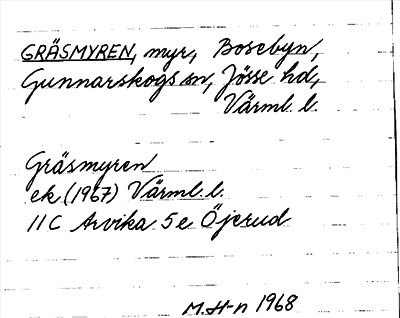 GRÄSMYREN, myr, Bosebyn,
Gunnarskogs sn, Jösse hd,
Värml. l.
Gräsmyren
ek. (1967) Värml. l.
11 C Arvika 5 e Öjerud
M. H-n 1968